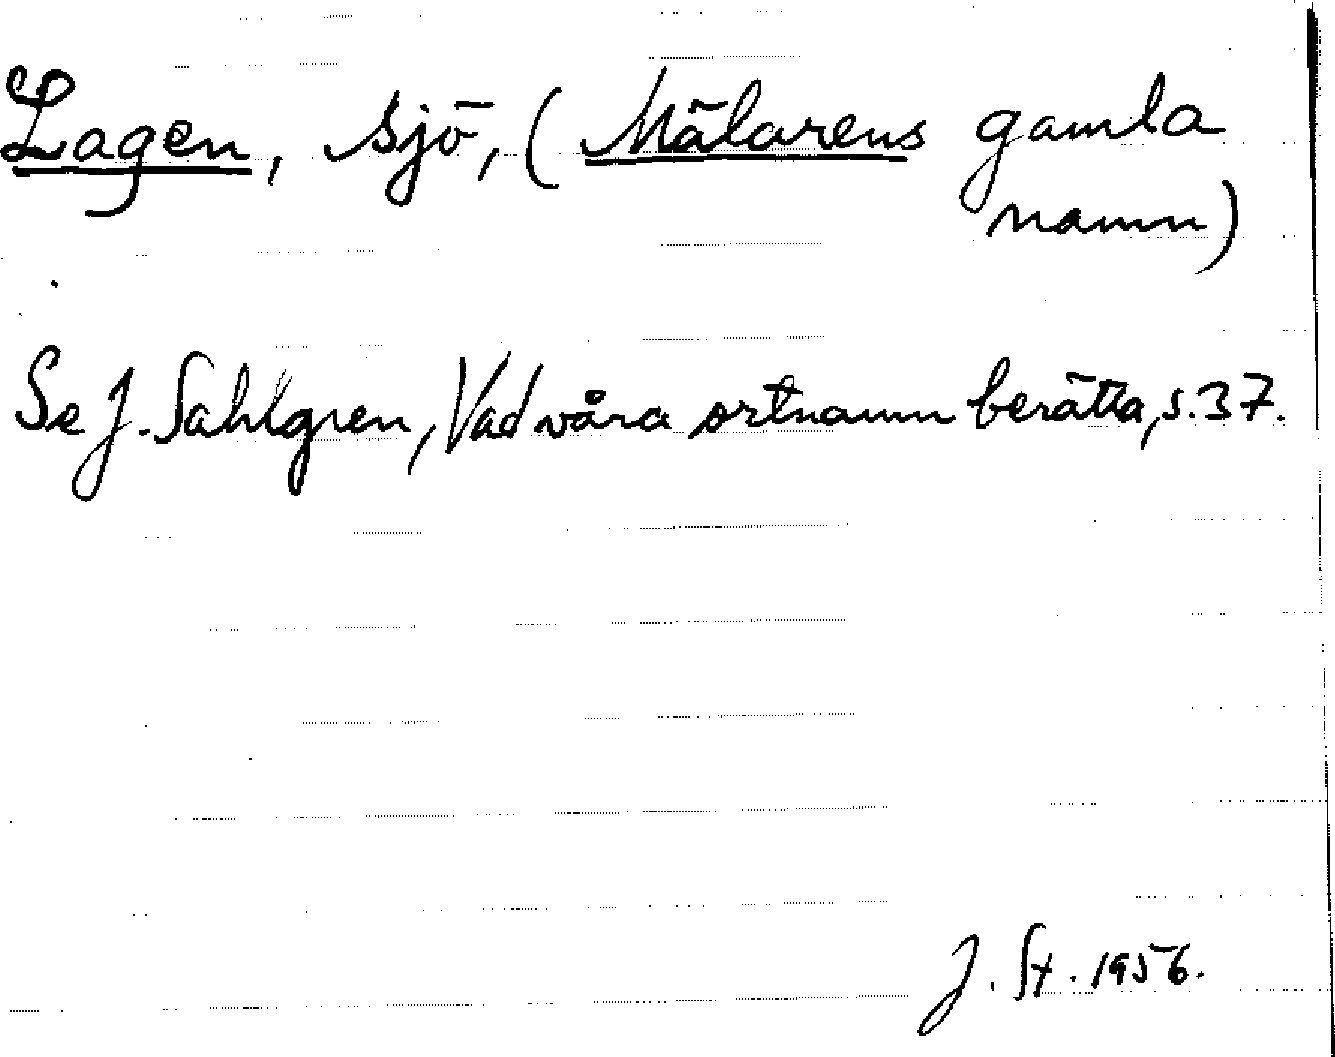 Lagen, sjö, (Mälarens gamla
namn)
Se J. Sahlgren, Vad våra ortnamn berätta, s. 37.
J. St. 1956.